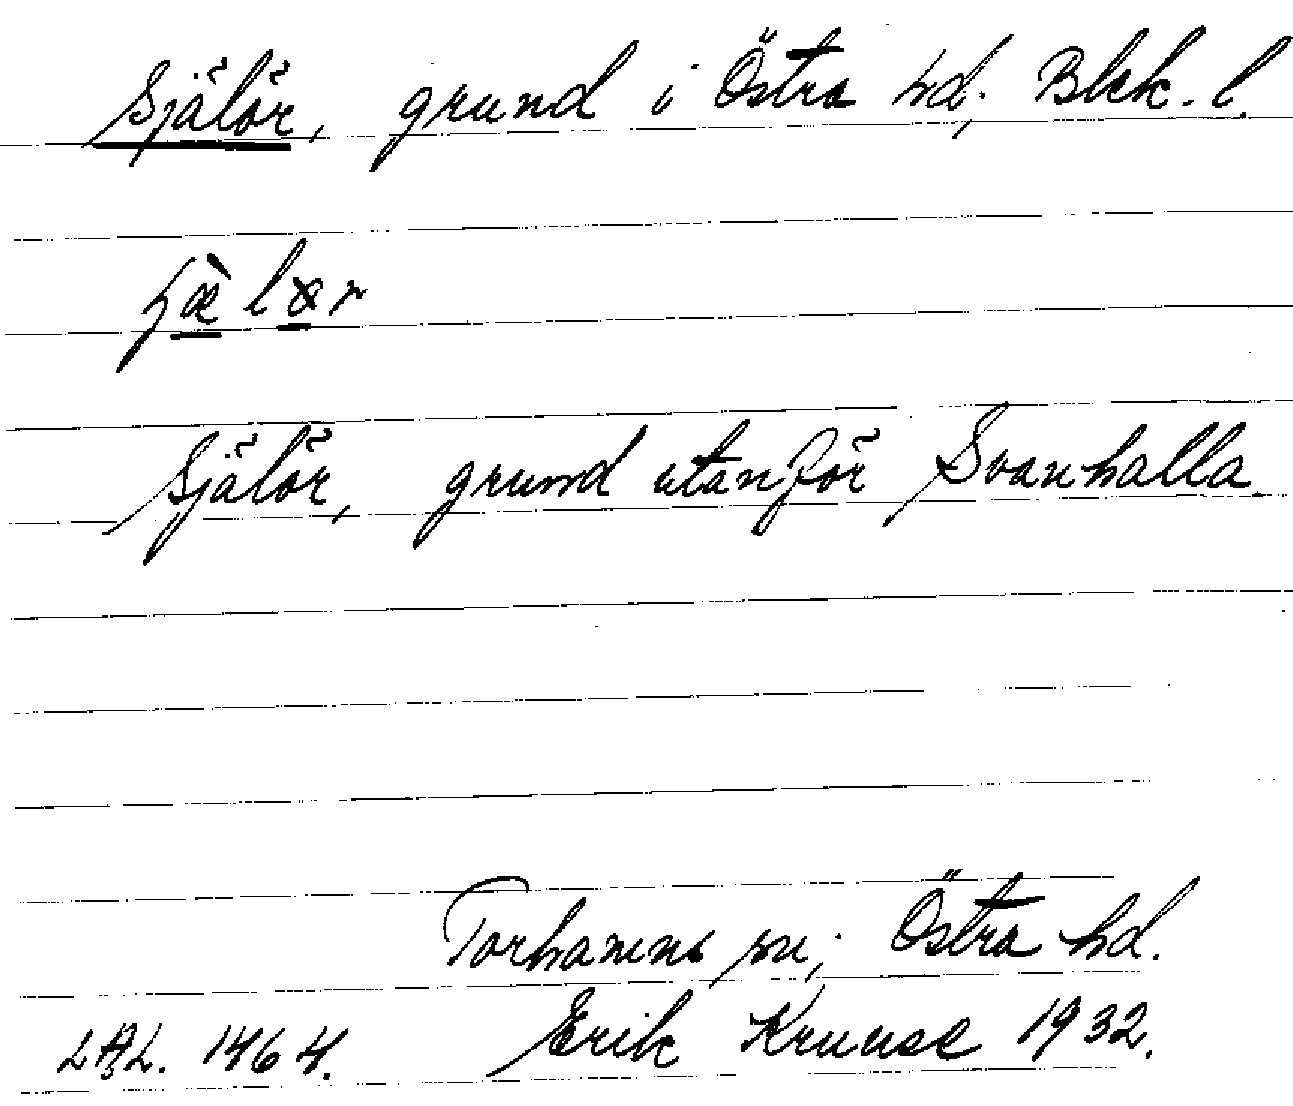 Själör, grund i Östra hd, Blek. l.
Själör, grund utanför Svanhalla.
Torhamns sn; Östra hd.
LAL. 1464. Erik Kruuse 1932.